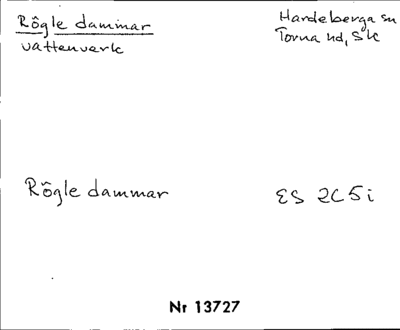 Rögle dammar
vattenverk
Hardeberga sn
Torna hd, Sk
Rögle dammar
ES 2C5i
Nr 13727